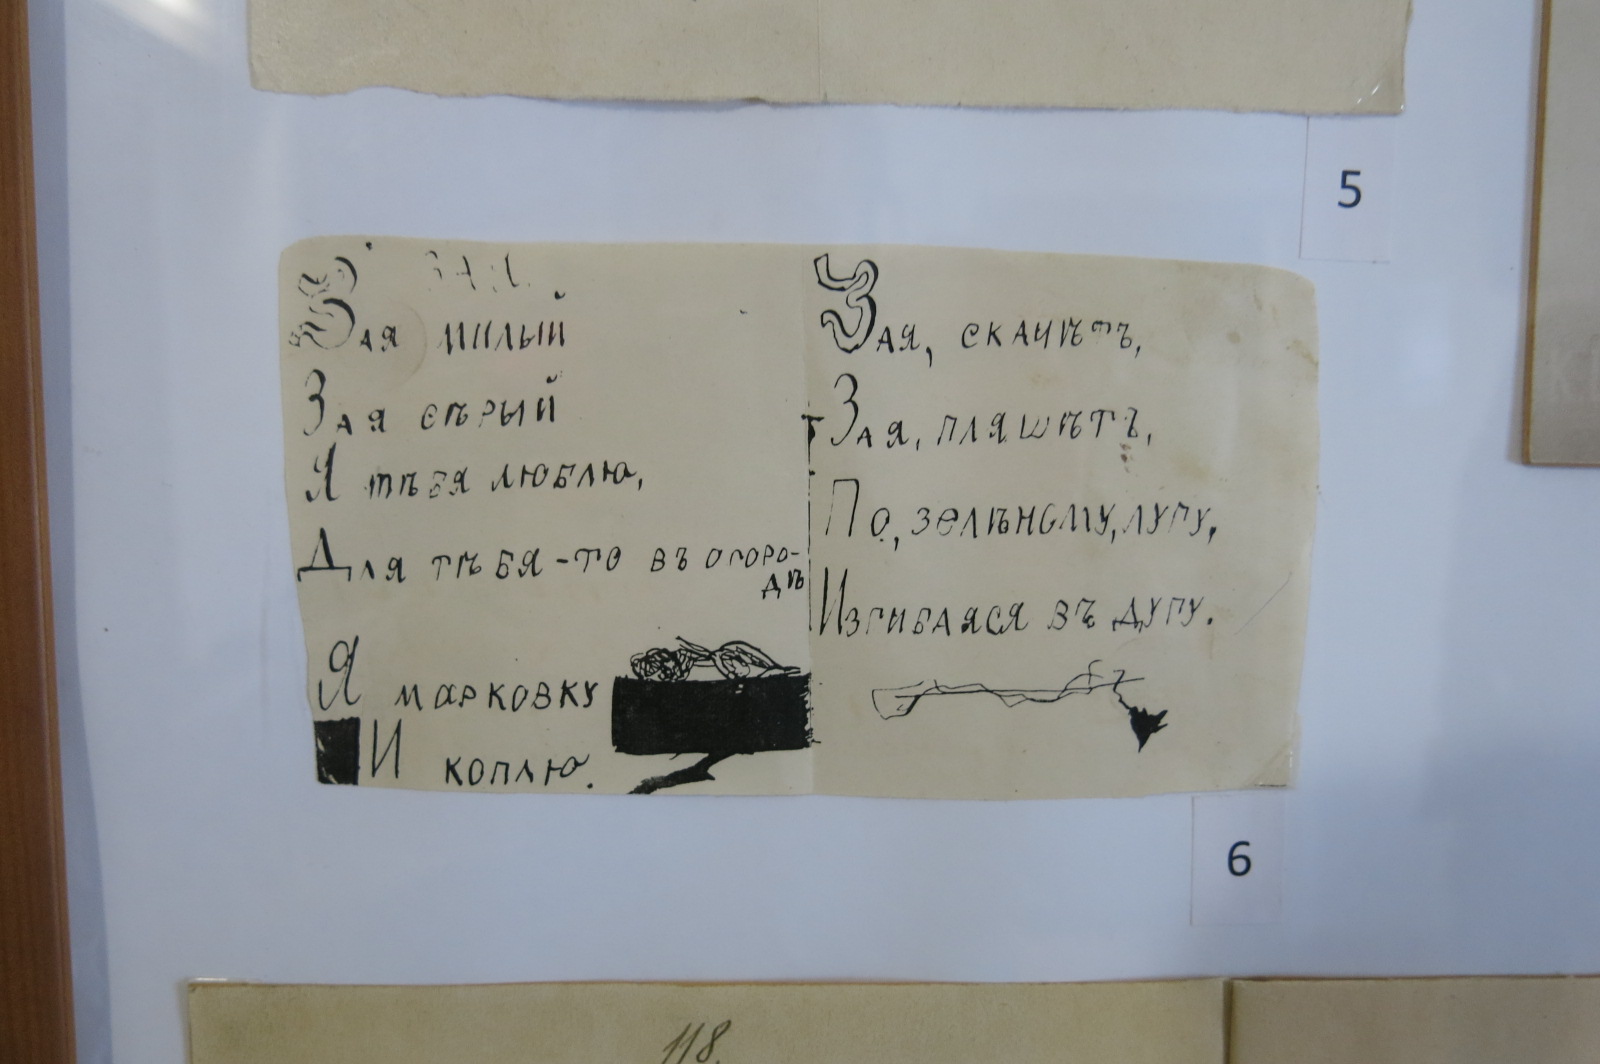 5
ЗАЯ.
Зая милый
Зая сѣрый
Я тѣбя люблю,
Для тѣбя-то въ огоро-
дѣ
Я марковку
И коплю.
Зая, скачѣтъ,
Зая, пляшѣтъ,
По, зелѣному, лугу,
Изгибаяся въ дугу.
6
118.